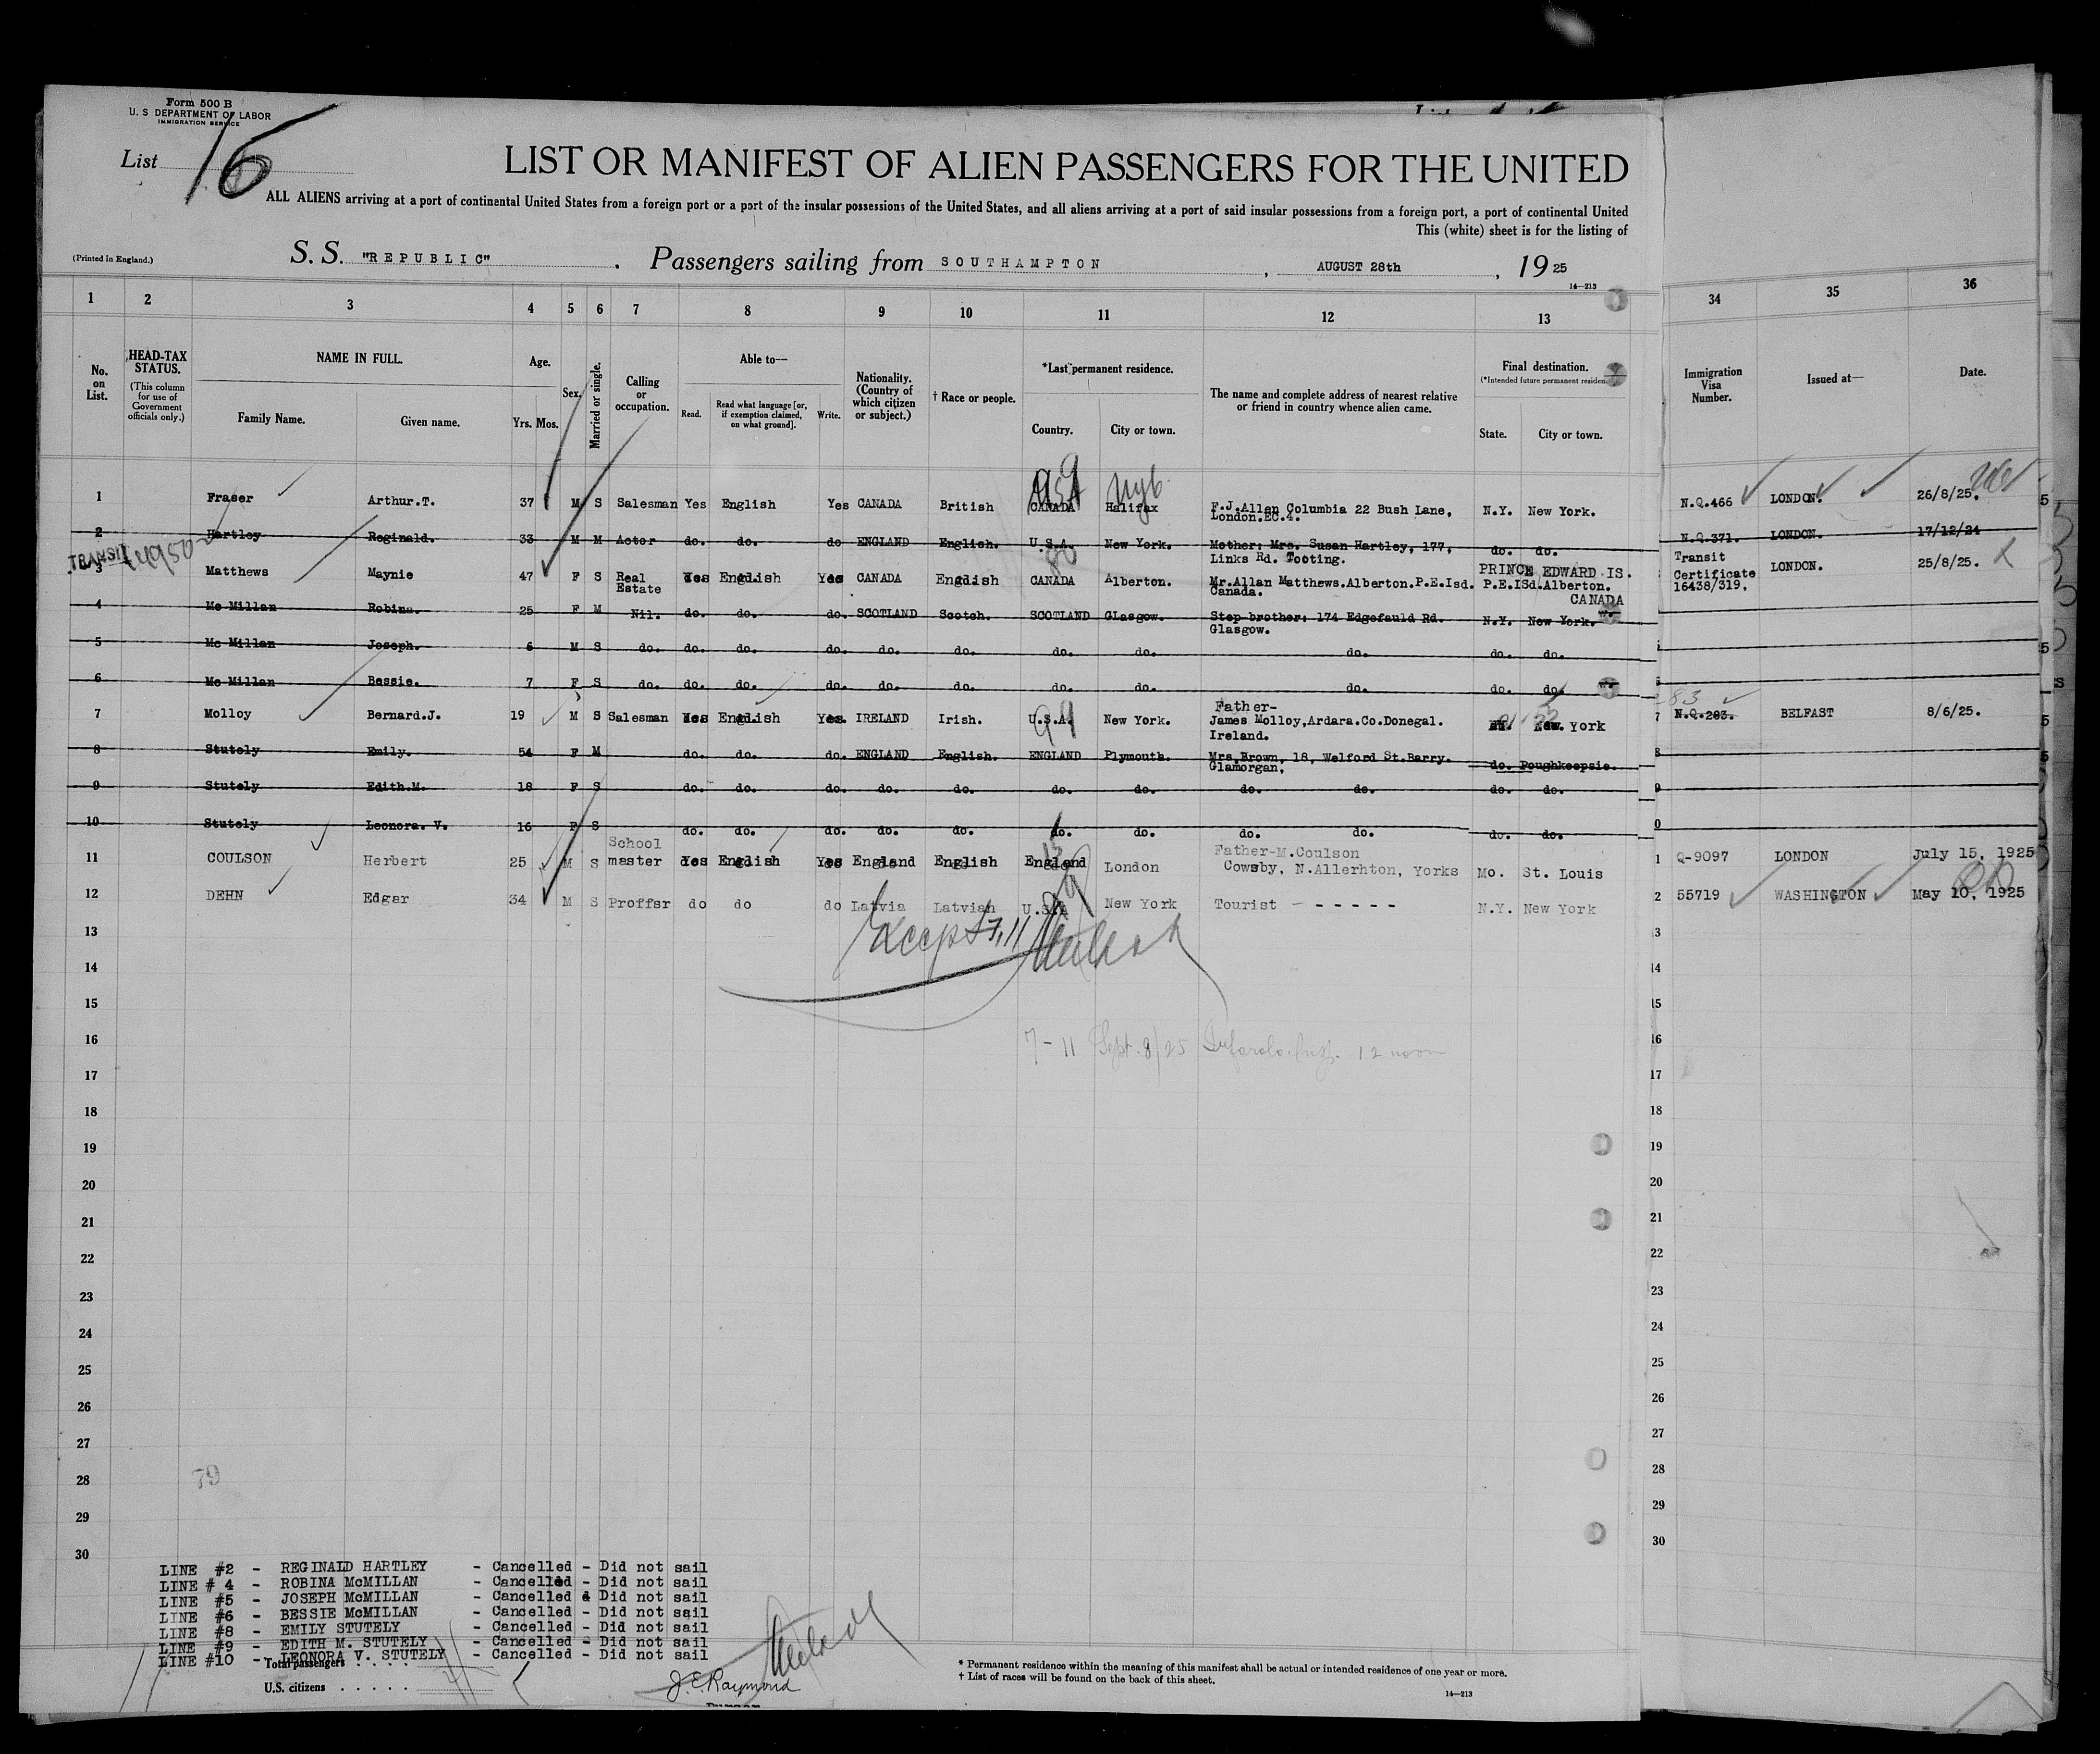 Form 500 B
U. S DEPARTMENT OF LABOR
IMMIGRATION SERVICE
List 16
LIST OR MANIFEST OF ALIEN PASSENGERS FOR THE UNITED
ALL ALIENS arriving at a port of continental United States from a foreign port or a port of the insular possessions of the United States, and all aliens arriving at a port of said insular possessions from a foreign port, a port of continental United
This (white) sheet is for the listing of
(Printed in England.)
S. S. "REPUBLIC" . Passengers sailing from SOUTHAMPTON , AUGUST 28th , 19 25
14—213
1 2 3 4 5 6 7 8 9 10 11 12 13 34 35 36
No. on List.
HEAD-TAX STATUS.
(This column for use of Government officials only.)
NAME IN FULL.
Family Name. Given name.
Age.
Yrs. Mos.
Sex.
Married or single.
Calling or occupation.
Able to—
Read. Read what language [or, if exemption claimed, on what ground]. Write.
Nationality. (Country of which citizen or subject.)
† Race or people.
*Last permanent residence.
Country. City or town.
The name and complete address of nearest relative or friend in country whence alien came.
Final destination.
(*Intended future permanent residence
State. City or town.
Immigration Visa Number.
Issued at—
Date.
1 Fraser Arthur.T. 37 M S Salesman Yes English Yes CANADA British CANADA Halifax F.J.Allen Columbia 22 Bush Lane, London.EC.4. N.Y. New York. N.Q.466 LONDON. 26/8/25.
2 Hartley Reginald. 33 M M Actor do. do. do ENGLAND English. U.S.A. New York. Mother: Mrs. Susan Hartley, 177, Links Rd. Tooting. do. do. N.Q.371. LONDON. 17/12/24
TRANSIT
3 Matthews Maynie 47 F S Real Estate Yes English Yes CANADA English CANADA Alberton. Mr.Allan Matthews.Alberton.P.E.Isd. Canada. PRINCE EDWARD IS. P.E.ISd.Alberton. CANADA Transit Certificate 16438/319. LONDON. 25/8/25.
4 Mc Millan Robina. 25 F M Nil. do. do. do. SCOTLAND Scotch. SCOTLAND Glasgow. Step-brother: 174 Edgefauld Rd. Glasgow. N.Y. New York.
5 Mc Millan Joseph. 6 M S do. do. do. do. do. do. do. do. do. do. do.
6 Mc Millan Bessie. 7 F S do. do. do. do. do. do. do. do. do. do. do.
7 Molloy Bernard.J. 19 M S Salesman Yes English Yes. IRELAND Irish. U.S.A. New York. Father- James Molloy,Ardara.Co.Donegal. Ireland. New York N.Q.283. BELFAST 8/6/25.
8 Stutely Emily. 54 F M do. do. do. ENGLAND English. ENGLAND Plymouth. Mrs.Brown, 18, Welford St.Barry. Glamorgan, do. Poughkeepsie.
9 Stutely Edith.M. 18 F S do. do. do. do. do. do. do. do. do. do. do.
10 Stutely Leonora. V. 16 F S do. do. do. do. do. do. do. do. do. do. do.
11 COULSON Herbert 25 M S School master Yes English Yes England English England London Father-M.Coulson Cowsby, N.Allerhton, Yorks Mo. St. Louis Q-9097 LONDON July 15, 1925
12 DEHN Edgar 34 M S Proffsr do do do Latvia Latvian U.S.A New York Tourist - - - - - - N.Y. New York 55719 WASHINGTON May 10, 1925
13
Except 7, 11
14
15
16
7 - 11 Sept. 8/25 12 noon
17
18
19
20
21
22
23
24
25
26
27
28
79
29
30
LINE #2 - REGINALD HARTLEY - Cancelled - Did not sail
LINE # 4 - ROBINA McMILLAN - Cancelled - Did not sail
LINE #5 - JOSEPH McMILLAN - Cancelled & Did not sail
LINE #6 - BESSIE McMILLAN - Cancelled - Did not sail
LINE #8 - EMILY STUTELY - Cancelled - Did not sail
LINE #9 - EDITH M. STUTELY - Cancelled - Did not sail
LINE #10 - LEONORA V. STUTELY - Cancelled - Did not sail
Total passengers . . . . .
U.S. citizens . . . . .
J. E. Raymond
Purser
* Permanent residence within the meaning of this manifest shall be actual or intended residence of one year or more.
† List of races will be found on the back of this sheet.
14—213